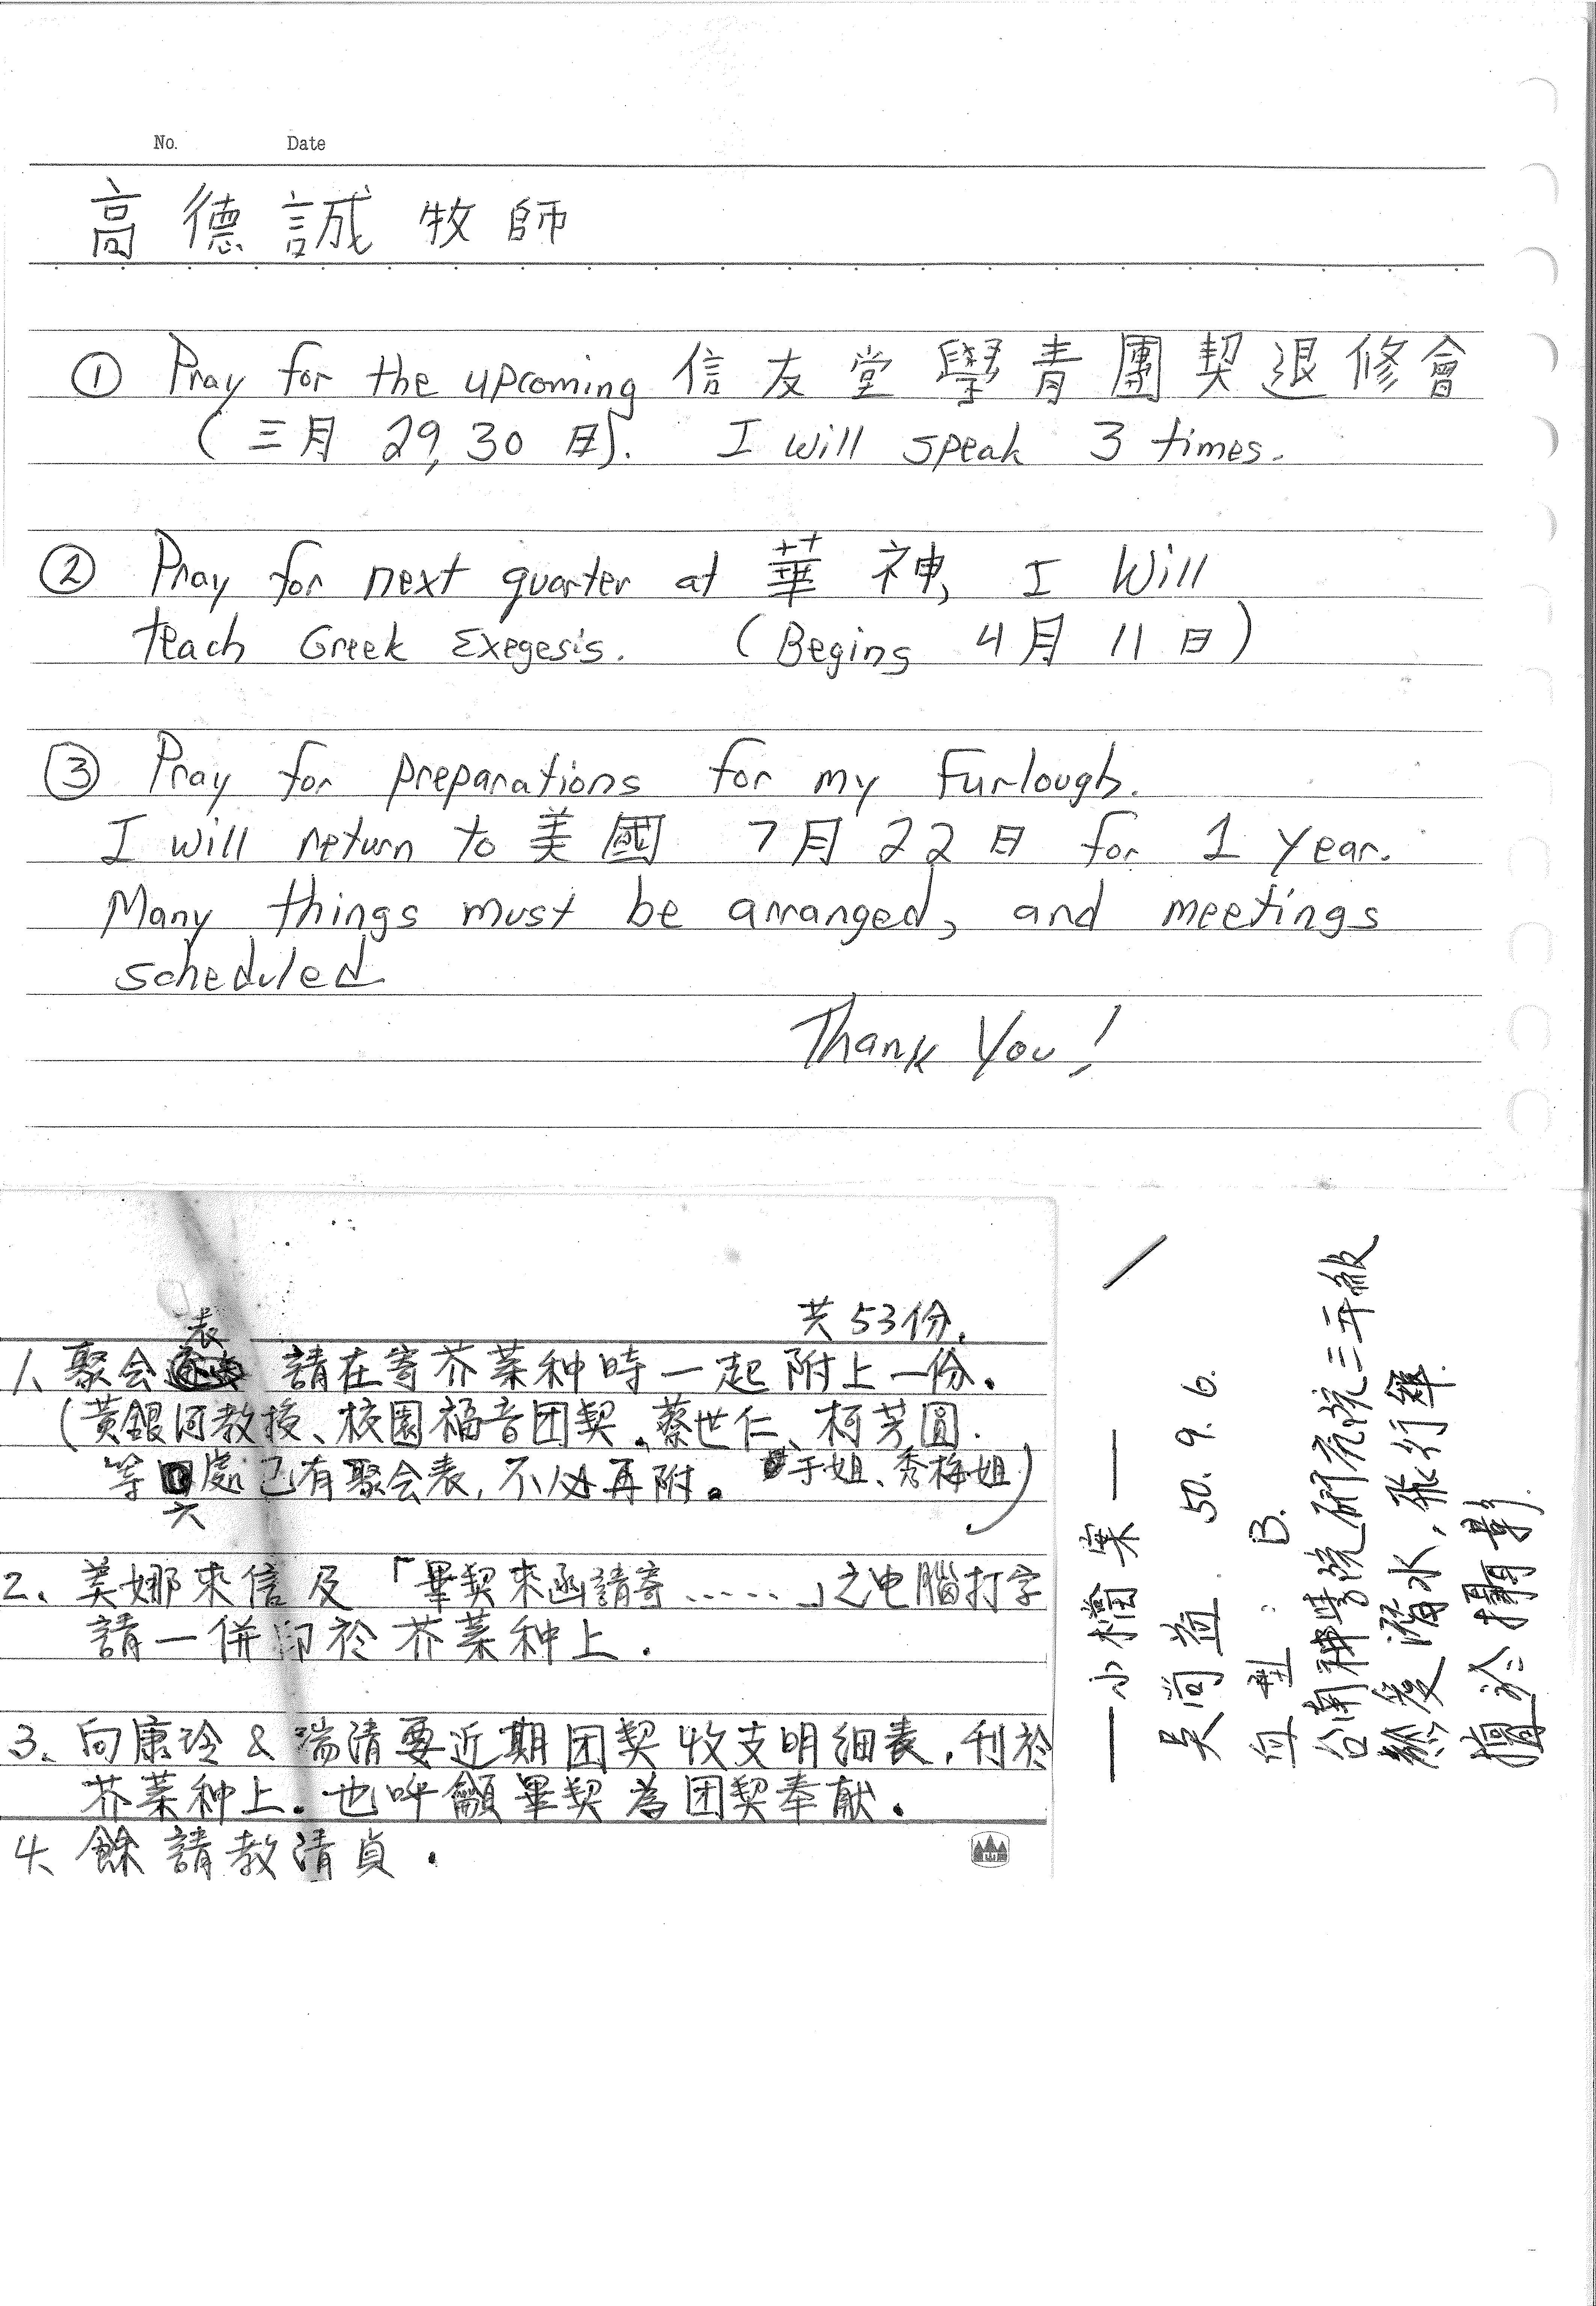 No. Date
高德誠牧師
① Pray for the upcoming 信友堂學青團契退修會
(三月 29, 30 日). I will speak 3 times.
② Pray for next quarter at 華神, I Will
teach Greek Exegesis. (Begins 4月 11日)
③ Pray for preparations for my Furlough.
I will return to 美國 7月22日 for 1 year.
Many things must be arranged, and meetings
scheduled
Thank You!
共53份.
1、聚会表 請在寄芥菜种時一起附上一份。
(黃銀河教授、校園福音团契、蔡世仁、柯芳圓.
于姐、秀梅姐)
等六處已有聚会表,不必再附。
2、美娜來信及「畢契來函請寄……」之电腦打字
請一併印於芥菜种上.
3、向康玲&瑞清要近期团契收支明細表,利於
芥菜种上。也呼籲畢契為团契奉献。
4、餘請教清貞.
—小檔案—
吳尚益 50.9.6.
血型:B.
台南神學院研究院三年級
熱愛潛水,飛行傘.
擅於攝影.